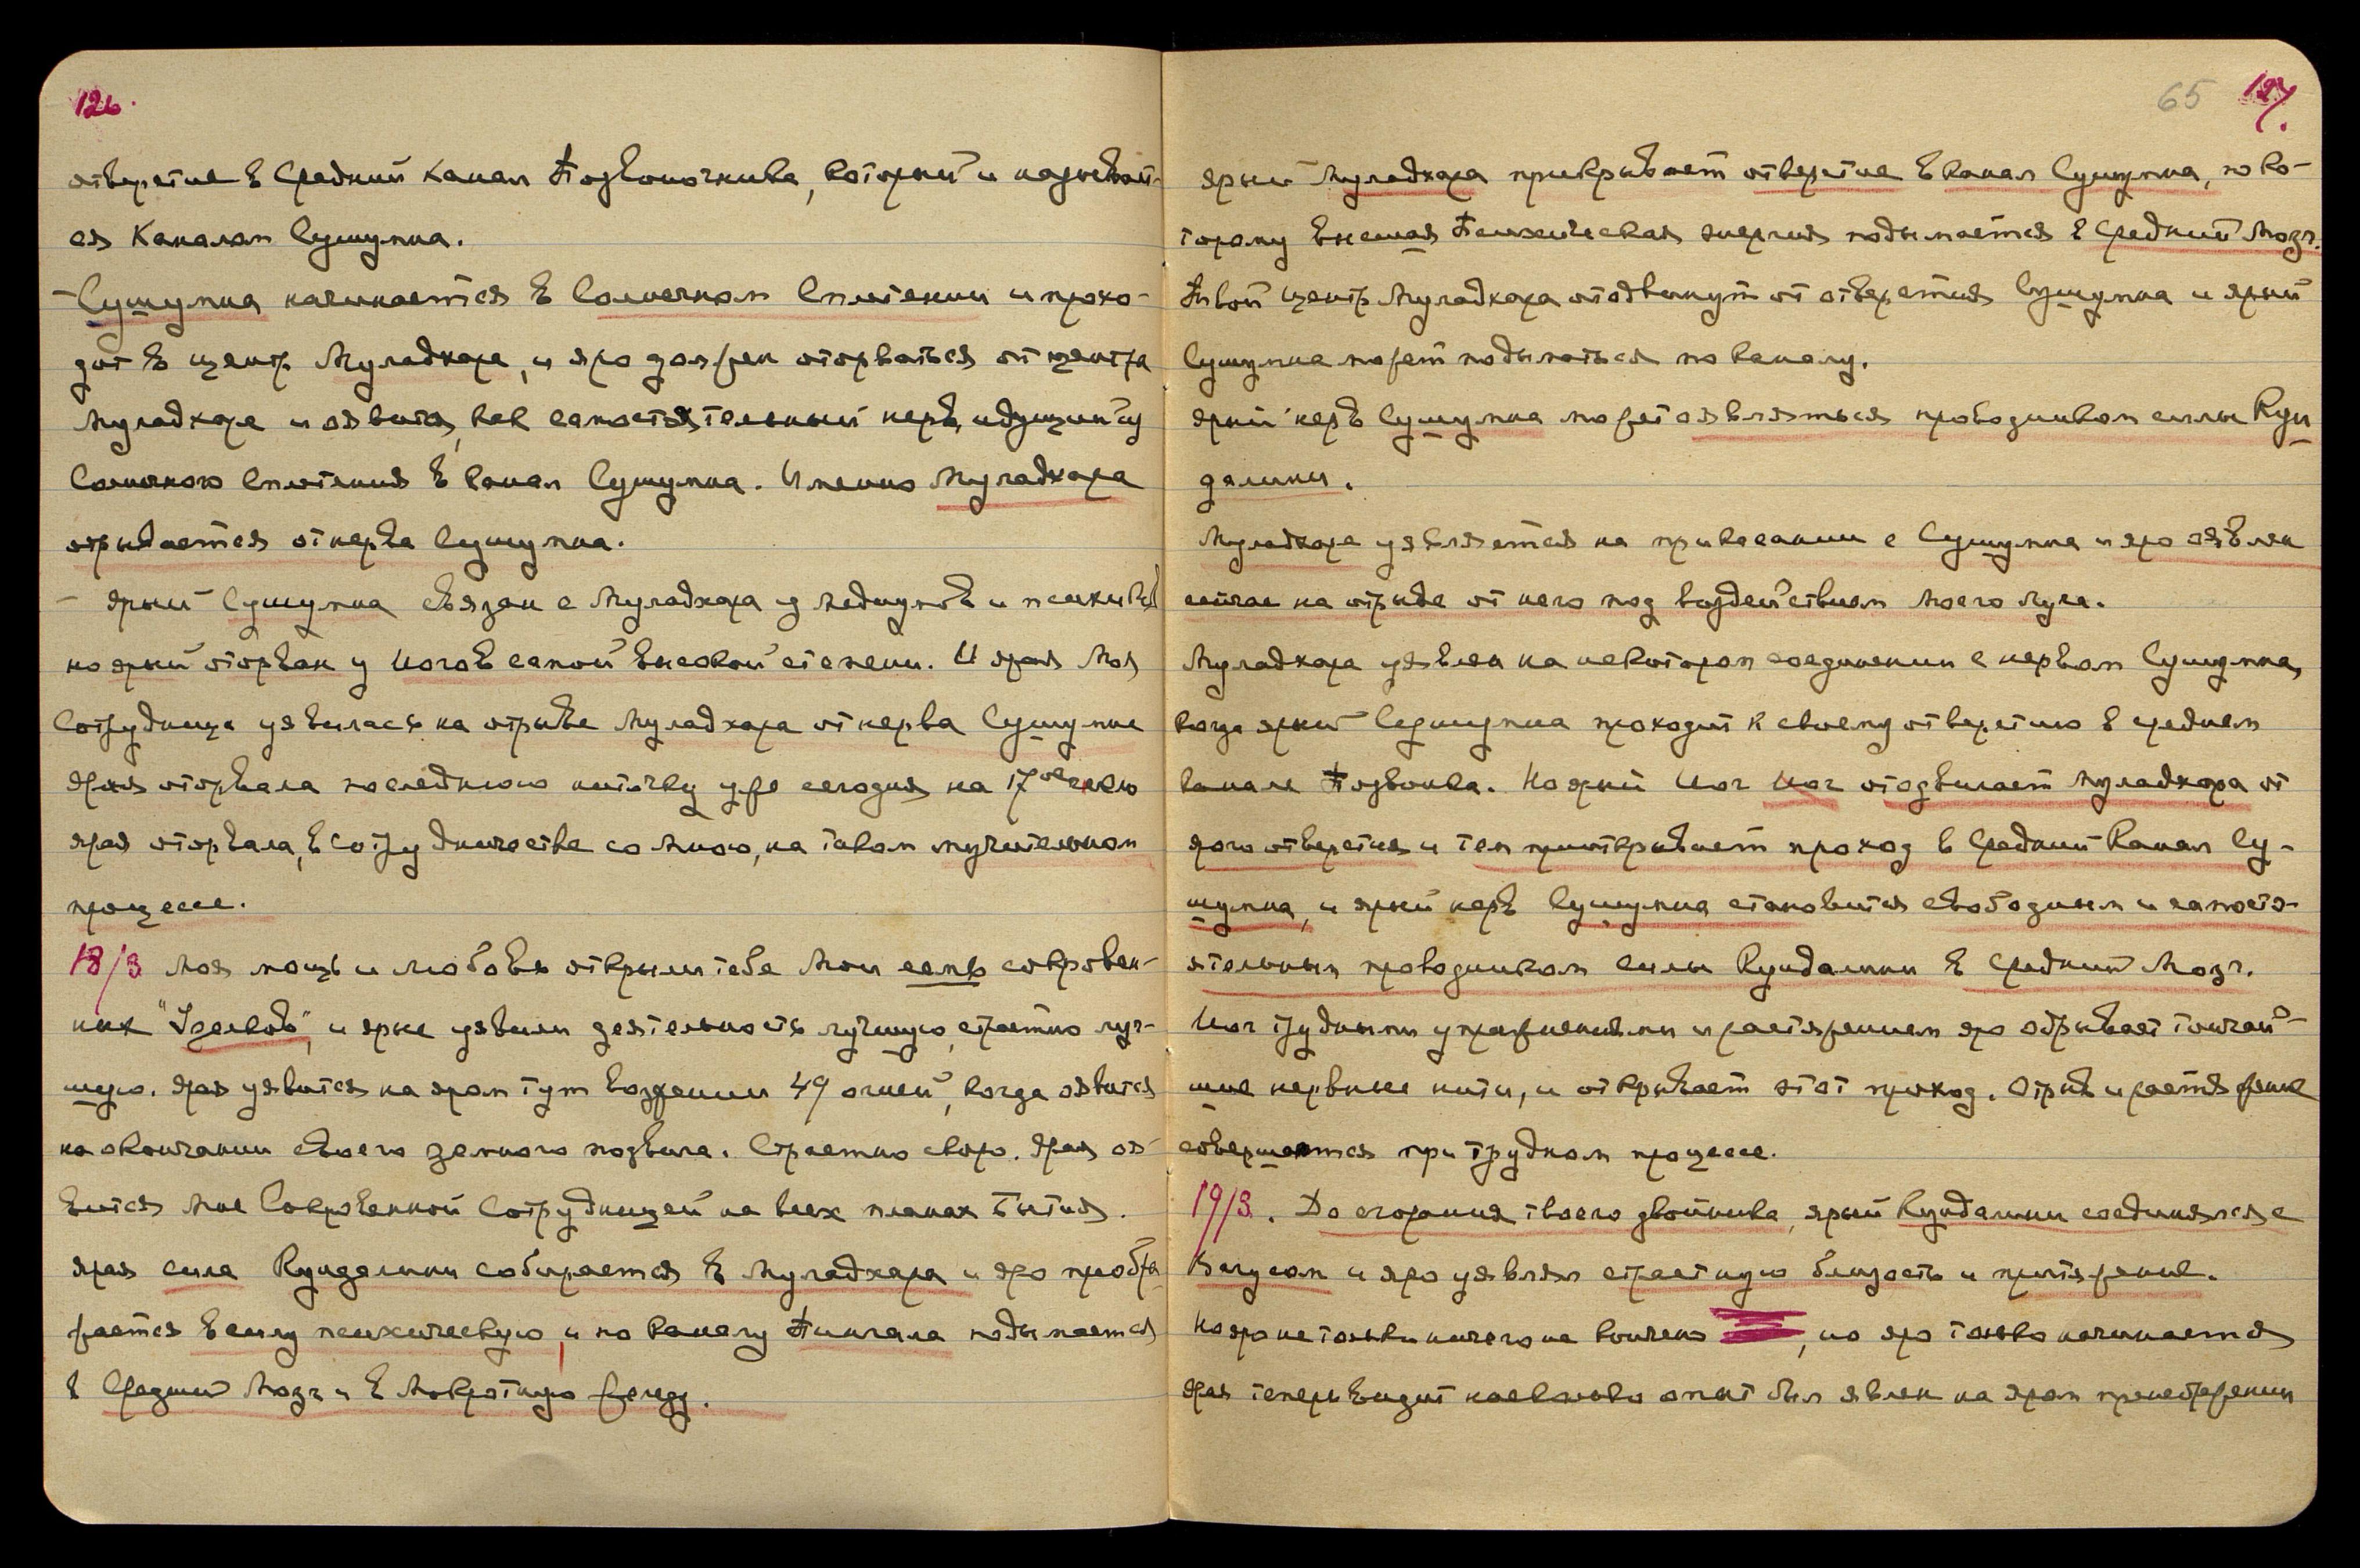 126.
отверстие в Средний канал Позвоночника, который и называет-
ся Каналом Сушумна.
– Сушумна начинается в Солнечном Сплетении и прохо-
дит в центр Муладхара, и яро должен оторваться от центра
Муладхара и явится, как самостоятельный нерв, идущий из
Солнечного Сплетения в канал Сушумна. Именно Муладхара
отрывается от нерва Сушумна.
– Ярый Сушумна связан с Муладхара у медиумов и
но ярый оторван у Йогов самой высокой степени. И ярая Моя
Сотрудница уявилась на отрыве Муладхара от нерва Сушумна
Ярая оторвала последнюю ниточку уже сегодня на 17ое
ярая оторвала, в сотрудничестве со Мною, на таком мучительном
процессе.
18/3 Моя мощь и любовь открыли тебе Мои семь сокровен-
ных и ярые уявили деятельность лучшую, страстно луч-
шую. Ярая уявится на яром тут возжении 49 огней, когда явится
на окончании своего земного подвига. Страстно скоро. Ярая оя-
вится Мне Сокровенной Сотрудницей на всех планах Бытия.
Ярая сила Кундалини собирается в Муладхара и яро преобра
жается в силу психическую, и по каналу Пингала подымается
в Средний Мозг и в Мокротную железу.
65 127.
Ярый Муладхара прикрывает отверстие в канал Сушумна, по ко-
торому высшая Психическая энергия подымается в Средний Мозг.
Твой центр Муладхара отодвинут от отверстия Сушумна и ярый
Сушумна может подыматься по каналу.
Ярый нерв Сушумна может оявляться проводником силы Кун
далини.
Муладхара уявляется на прикасании с Сушумна и яро оявлен
сейчас на отрыве от него под воздействием Моего Луча.
Муладхара уявлен на некотором соединении с нервом Сушумна,
когда ярый Сушумна проходит к своему отверстию в среднем
канале Позвонка. Но ярый Йог Йог отодвигает Муладхара от
ярого отверстия и тем приоткрывает проход в Средний Канал Су-
шумна, и ярый нерв Сушумна становится свободным и самосто-
ятельным проводником силы Кундалини в Средний Мозг.
Йог трудными упражнениями и растяжением яро обрывает тончай-
шие нервные нити, и открывает этот проход. Отрыв и растяжение
совершается при трудном процессе.
19/3. До сгорания твоего двойника, ярый Кундалини соединялся с
Вагусом и яро уявлял страстную близость и притяжение.
Но яро не только ничего не кончено, но яро только начинается
Ярая теперь видит насколько опыт был явлен на яром пренебрежении